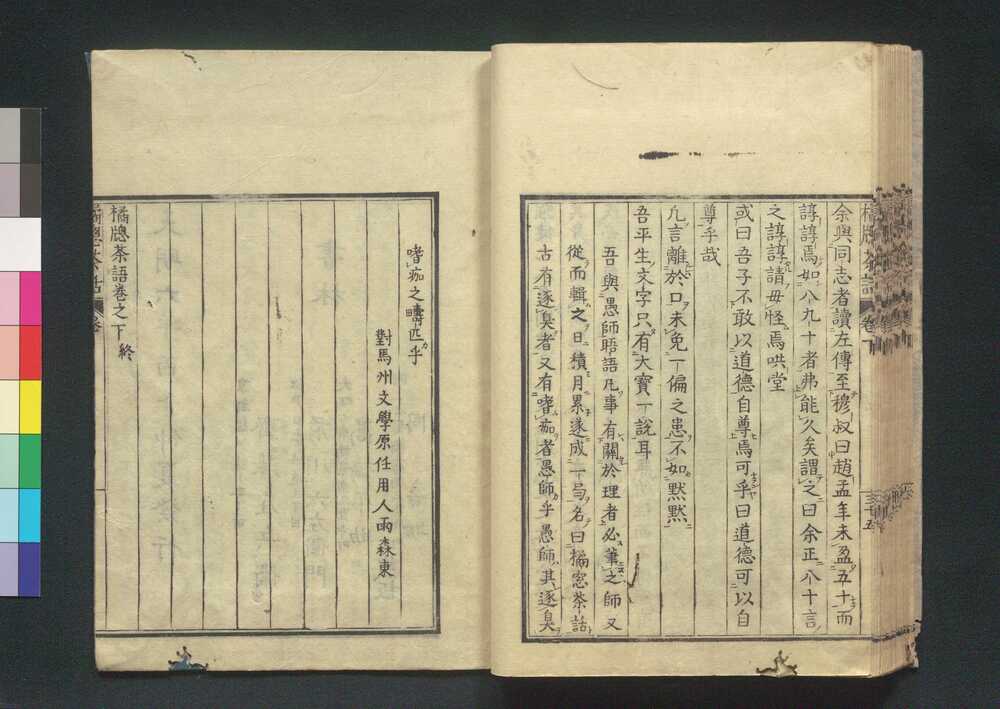 橘牕茶話 卷下 三十五
余與同志者讀左傳至穆叔曰趙孟年未盈五十而
諄諄焉如八九十者弗能久矣謂之曰余正八十言
之諄諄請毋怪焉哄堂
或曰吾子不敢以道德自尊焉可乎曰道德可以自
尊乎哉
凡言離於口未免一偏之患不如默默
吾平生文字只有大寶一說耳
吾與愚師晤語凡事有關於理者必筆之師又
從而輯之日積月累遂成一局名曰橘窓茶話
古有逐臭者又有嗜痂者愚師乎愚師其逐臭
嗜痂之疇匹乎
對馬州文學原任用人雨森東
橘牕茶語卷之下 終